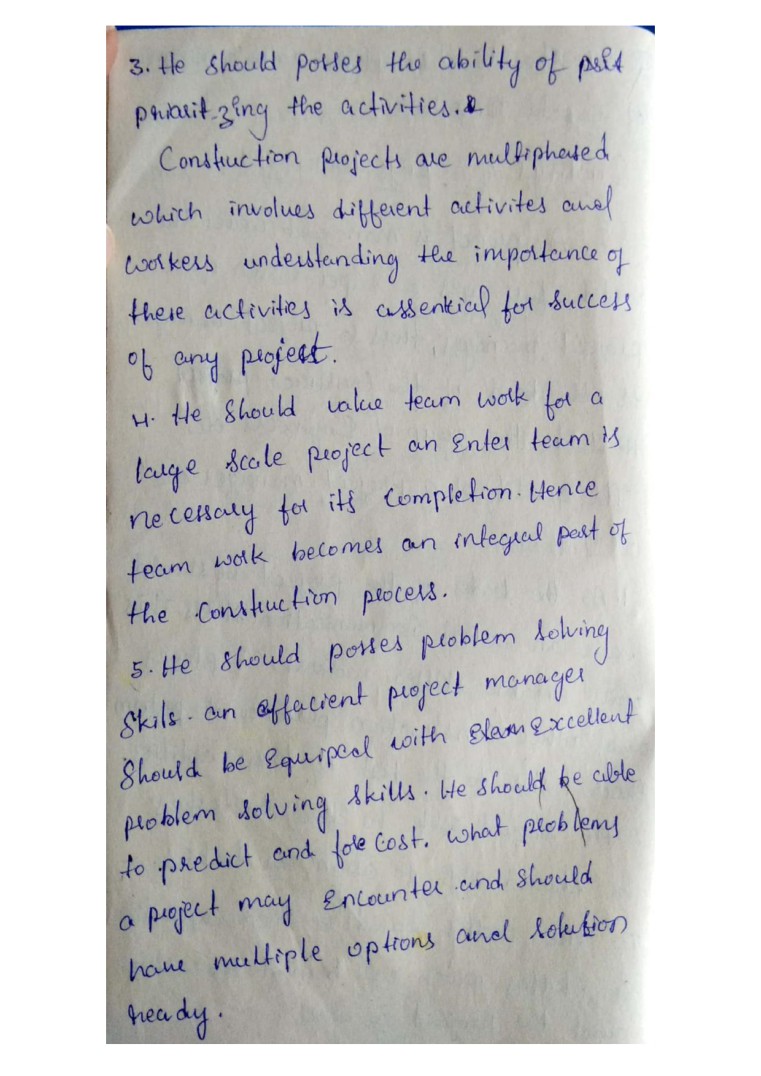 3. He should posses the ability of
prioritizing the activities.
Construction projects are multiphased
which involves different activites and
workers understanding the importance of
these activities is assenticial for success
of any project.
4. He should value team work for a
large scale project an Enter team is
necessary for its completion. Hence
team work becomes an integral part of
the construction process.
5. He should posses problem solving
skils. an effacient project manager
should be Equiped with Excellent
problem solving skills. He should be able
to predict and fore cost. what problems
a project may Encounter and should
have multiple options and solution
ready.